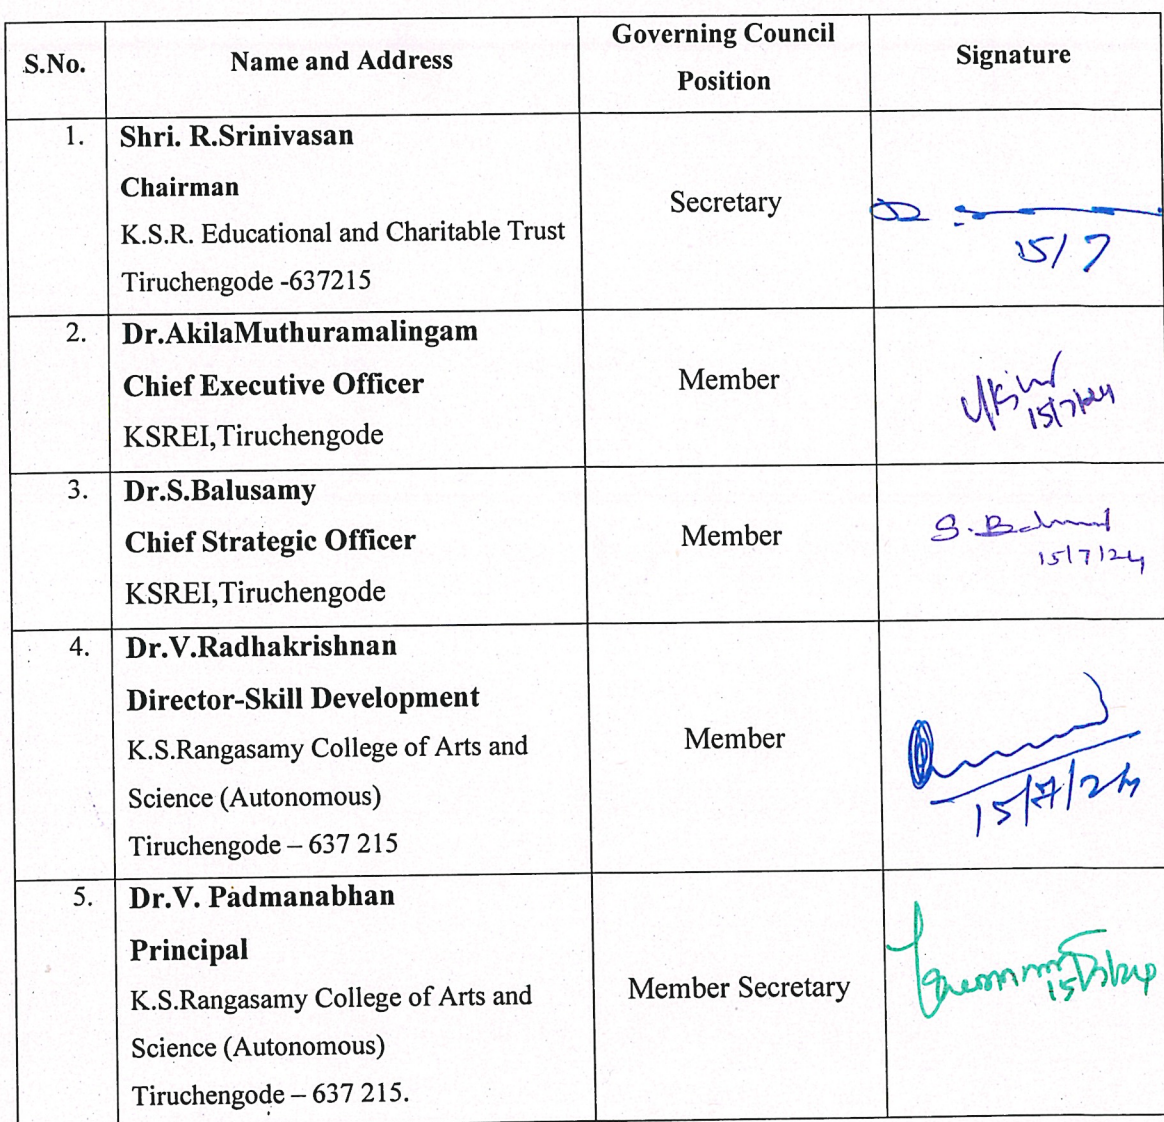 S.No.
Name and Address
Governing Council
Position
Signature
1.
Shri. R.Srinivasan
Chairman
K.S.R. Educational and Charitable Trust
Tiruchengode -637215
Secretary
15/7
2.
Dr.AkilaMuthuramalingam
Chief Executive Officer
KSREI,Tiruchengode
Member
15/7/24
3.
Dr.S.Balusamy
Chief Strategic Officer
KSREI,Tiruchengode
Member
15/7/24
4.
Dr.V.Radhakrishnan
Director-Skill Development
K.S.Rangasamy College of Arts and
Science (Autonomous)
Tiruchengode – 637 215
Member
15/7/24
5.
Dr.V. Padmanabhan
Principal
K.S.Rangasamy College of Arts and
Science (Autonomous)
Tiruchengode – 637 215.
Member Secretary